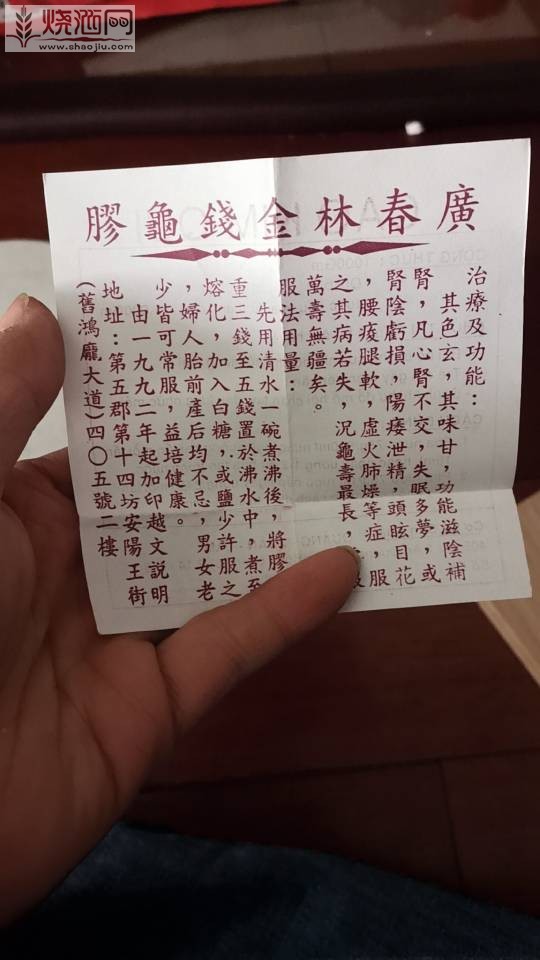 烧酒网
www.shaojiu.com
廣春林金錢龜膠
治療及功能：
其色玄，其味甘，功能滋陰補
腎，凡心腎不交，失眠多夢，或
腎陰虧損，陽痿泄精，頭眩目花
，腰痠腿軟，虛火肺燥等症，服
之其病若失，況龜壽最長，
萬壽無疆矣。
服法用量：
先用清水一碗煮沸後，將膠
重三錢至五錢置於沸水中，煮至
熔化，加入白糖，或鹽少許服之
，婦人胎前產后均不忌，男女老
少皆可常服，益培健康。
由一九九二年起加印越文説明
地址：第五郡第十四坊安陽王街
（舊鴻龐大道）四〇五號二樓